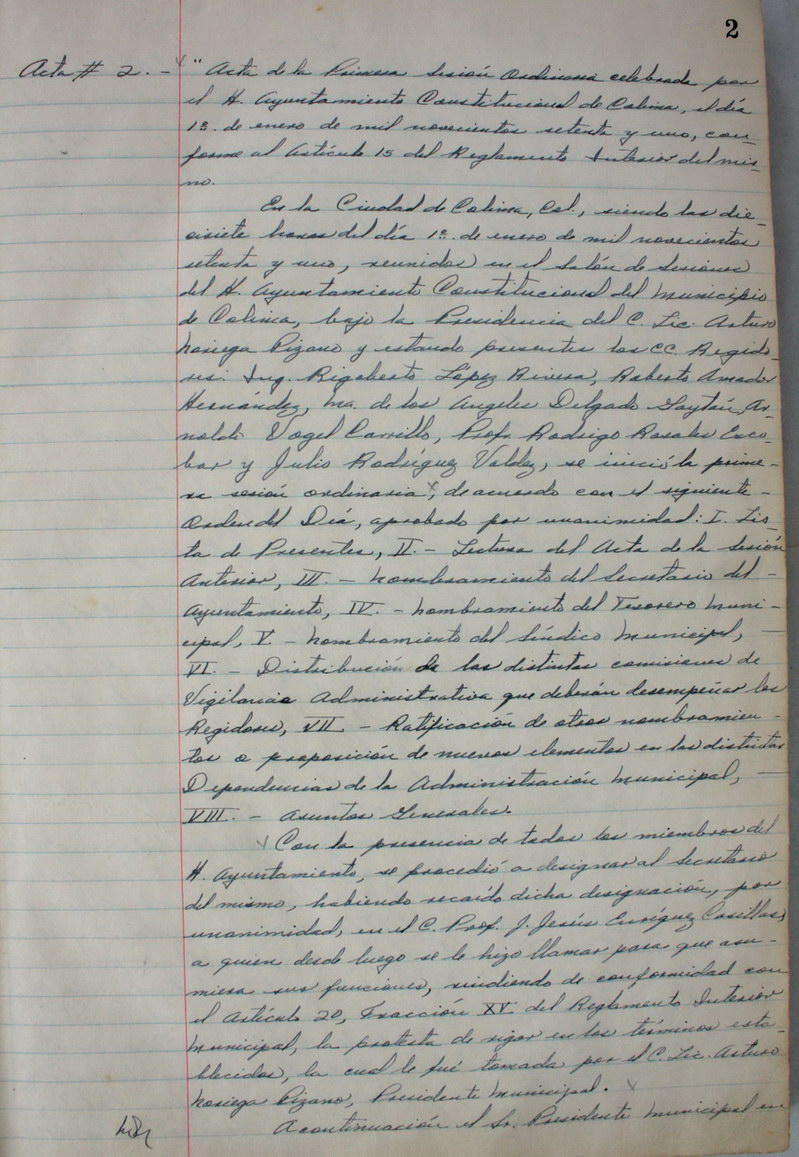 2
Acta # 2.- "Acta de la Primera Sesión Ordinaria celebrada por
el H. Ayuntamiento Constitucional de Colima, el día
1o. de enero de mil novecientos setenta y uno, con-
forme al Artículo 15 del Reglamento Interior del mis-
mo.
En la Ciudad de Colima, Col., siendo las die-
cisiete horas del día 1o. de enero de mil novecientos
setenta y uno, reunidos en el Salón de Sesiones
del H. Ayuntamiento Constitucional del Municipio
de Colima, bajo la Presidencia del C. Lic. Arturo
Noriega Pizano y estando presentes los CC. Regido-
res: Ing. Rigoberto López Rivera, Roberto Amador
Hernández, Ma. de los Angeles Delgado Gaytán, Ar-
noldo Vogel Carrillo, Profr. Rodrigo Rosales Esco-
bar y Julio Rodríguez Valdez, se inició la prime-
ra sesión ordinaria, de acuerdo con el siguiente -
Orden del Día, aprobado por unanimidad: I. Lis-
ta de Presentes, II.- Lectura del Acta de la Sesión
Anterior, III.- Nombramiento del Secretario del -
Ayuntamiento, IV.- Nombramiento del Tesorero Muni-
cipal, V.- Nombramiento del Síndico Municipal, -
VI.- Distribución de las distintas comisiones de
Vigilancia Administrativa que deberán desempeñar los
Regidores, VII.- Ratificación de otros nombramien-
tos o proposición de nuevos elementos en las distintas
Dependencias de la Administración Municipal, -
VIII.- Asuntos Generales.
Con la presencia de todos los miembros del
H. Ayuntamiento, se procedió a designar al Secretario
del mismo, habiendo recaído dicha designación, por
unanimidad, en el C. Prof. J. Jesús Enríquez Casillas,
a quien desde luego se le hizo llamar para que asu-
miera sus funciones, rindiendo de conformidad con
el Artículo 20, Fracción XV del Reglamento Interior
Municipal, la protesta de rigor en los términos esta-
blecidos, la cual le fué tomada por el C. Lic. Arturo
Noriega Pizano, Presidente Municipal.
A continuación el Sr. Presidente Municipal en